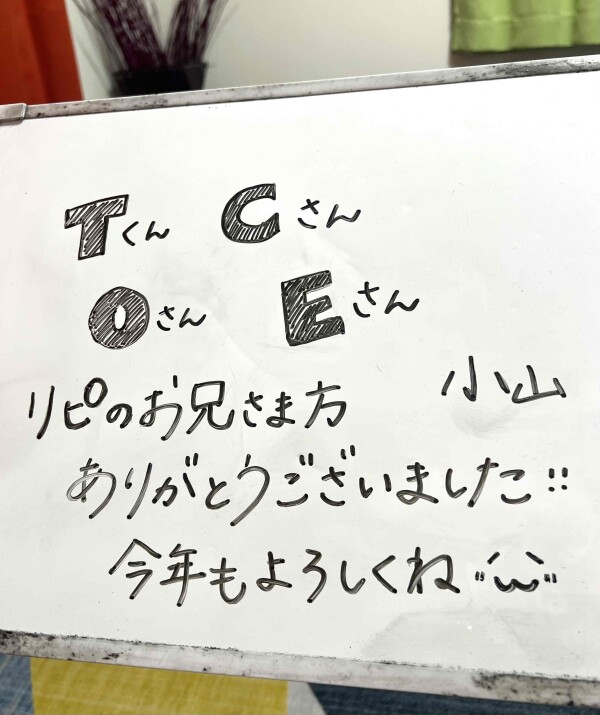 Tくん Cさん
Oさん Eさん
小山
リピのお兄さま方
ありがとうございました!!
今年もよろしくね "´ω`"